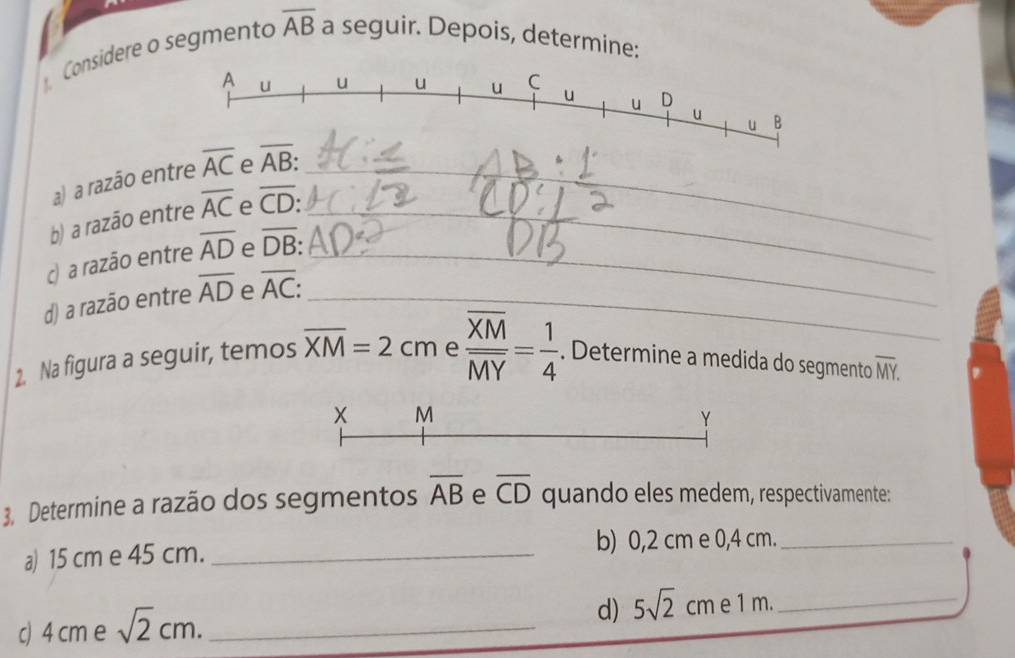 1. Considere o segmento \overline{AB} a seguir. Depois, determine:
A u u u u C u u D u u B
a) a razão entre \overline{AC} e \overline{AB}: AC : 1 AB : 1
b) a razão entre \overline{AC} e \overline{CD}: AC : 12 CD : 1 2
c) a razão entre \overline{AD} e \overline{DB}: AD : 2 DB
d) a razão entre \overline{AD} e \overline{AC}:
2. Na figura a seguir, temos \overline{XM} = 2 cm e \frac{\overline{XM}}{\overline{MY}} = \frac{1}{4}. Determine a medida do segmento \overline{MY}.
X M Y
3. Determine a razão dos segmentos \overline{AB} e \overline{CD} quando eles medem, respectivamente:
a) 15 cm e 45 cm.
b) 0,2 cm e 0,4 cm.
c) 4 cm e √2 cm.
d) 5√2 cm e 1 m.